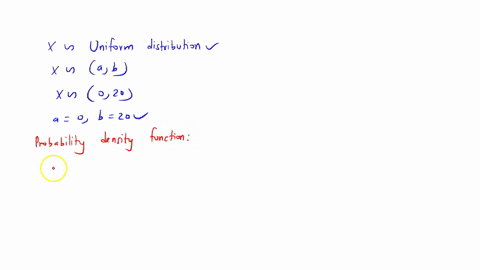 X ~ Uniform distribution ✓
X ~ (a, b)
X ~ (0, 20)
a = 0, b = 20 ✓
Probability density function: